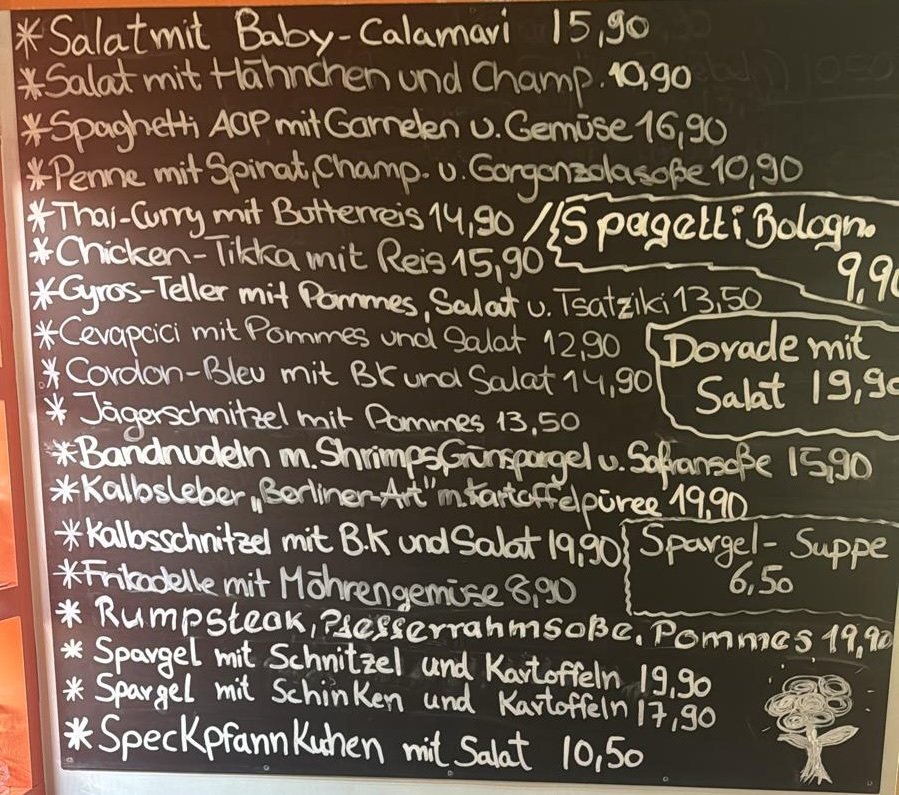 * Salat mit Baby-Calamari 15,90
* Salat mit Hähnchen und Champ. 10,90
* Spaghetti AOP mit Garnelen u. Gemüse 16,90
* Penne mit Spinat, Champ. u. Gorgonzolasoße 10,90
* Thai-Curry mit Butterreis 14,90 //
Spagetti Bologn.
9,90
* Chicken-Tikka mit Reis 15,90
* Gyros-Teller mit Pommes, Salat u. Tsatziki 13,50
* Cevapcici mit Pommes und Salat 12,90
Dorade mit
Salat 19,90
* Cordon-Bleu mit BK und Salat 14,90
* Jägerschnitzel mit Pommes 13,50
* Bandnudeln m. Shrimps, Günspargel u. Safransoße 15,90
* Kalbsleber „Berliner-Art" m. Kartoffelpüree 19,90
* Kalbsschnitzel mit B.K und Salat 19,90
Spargel-Suppe
6,50
* Frikadelle mit Möhrengemüse 8,90
* Rumpsteak, Pfefferrahmsoße, Pommes 19,90
* Spargel mit Schnitzel und Kartoffeln 19,90
* Spargel mit Schinken und Kartoffeln 17,90
* Speckpfannkuhen mit Salat 10,50